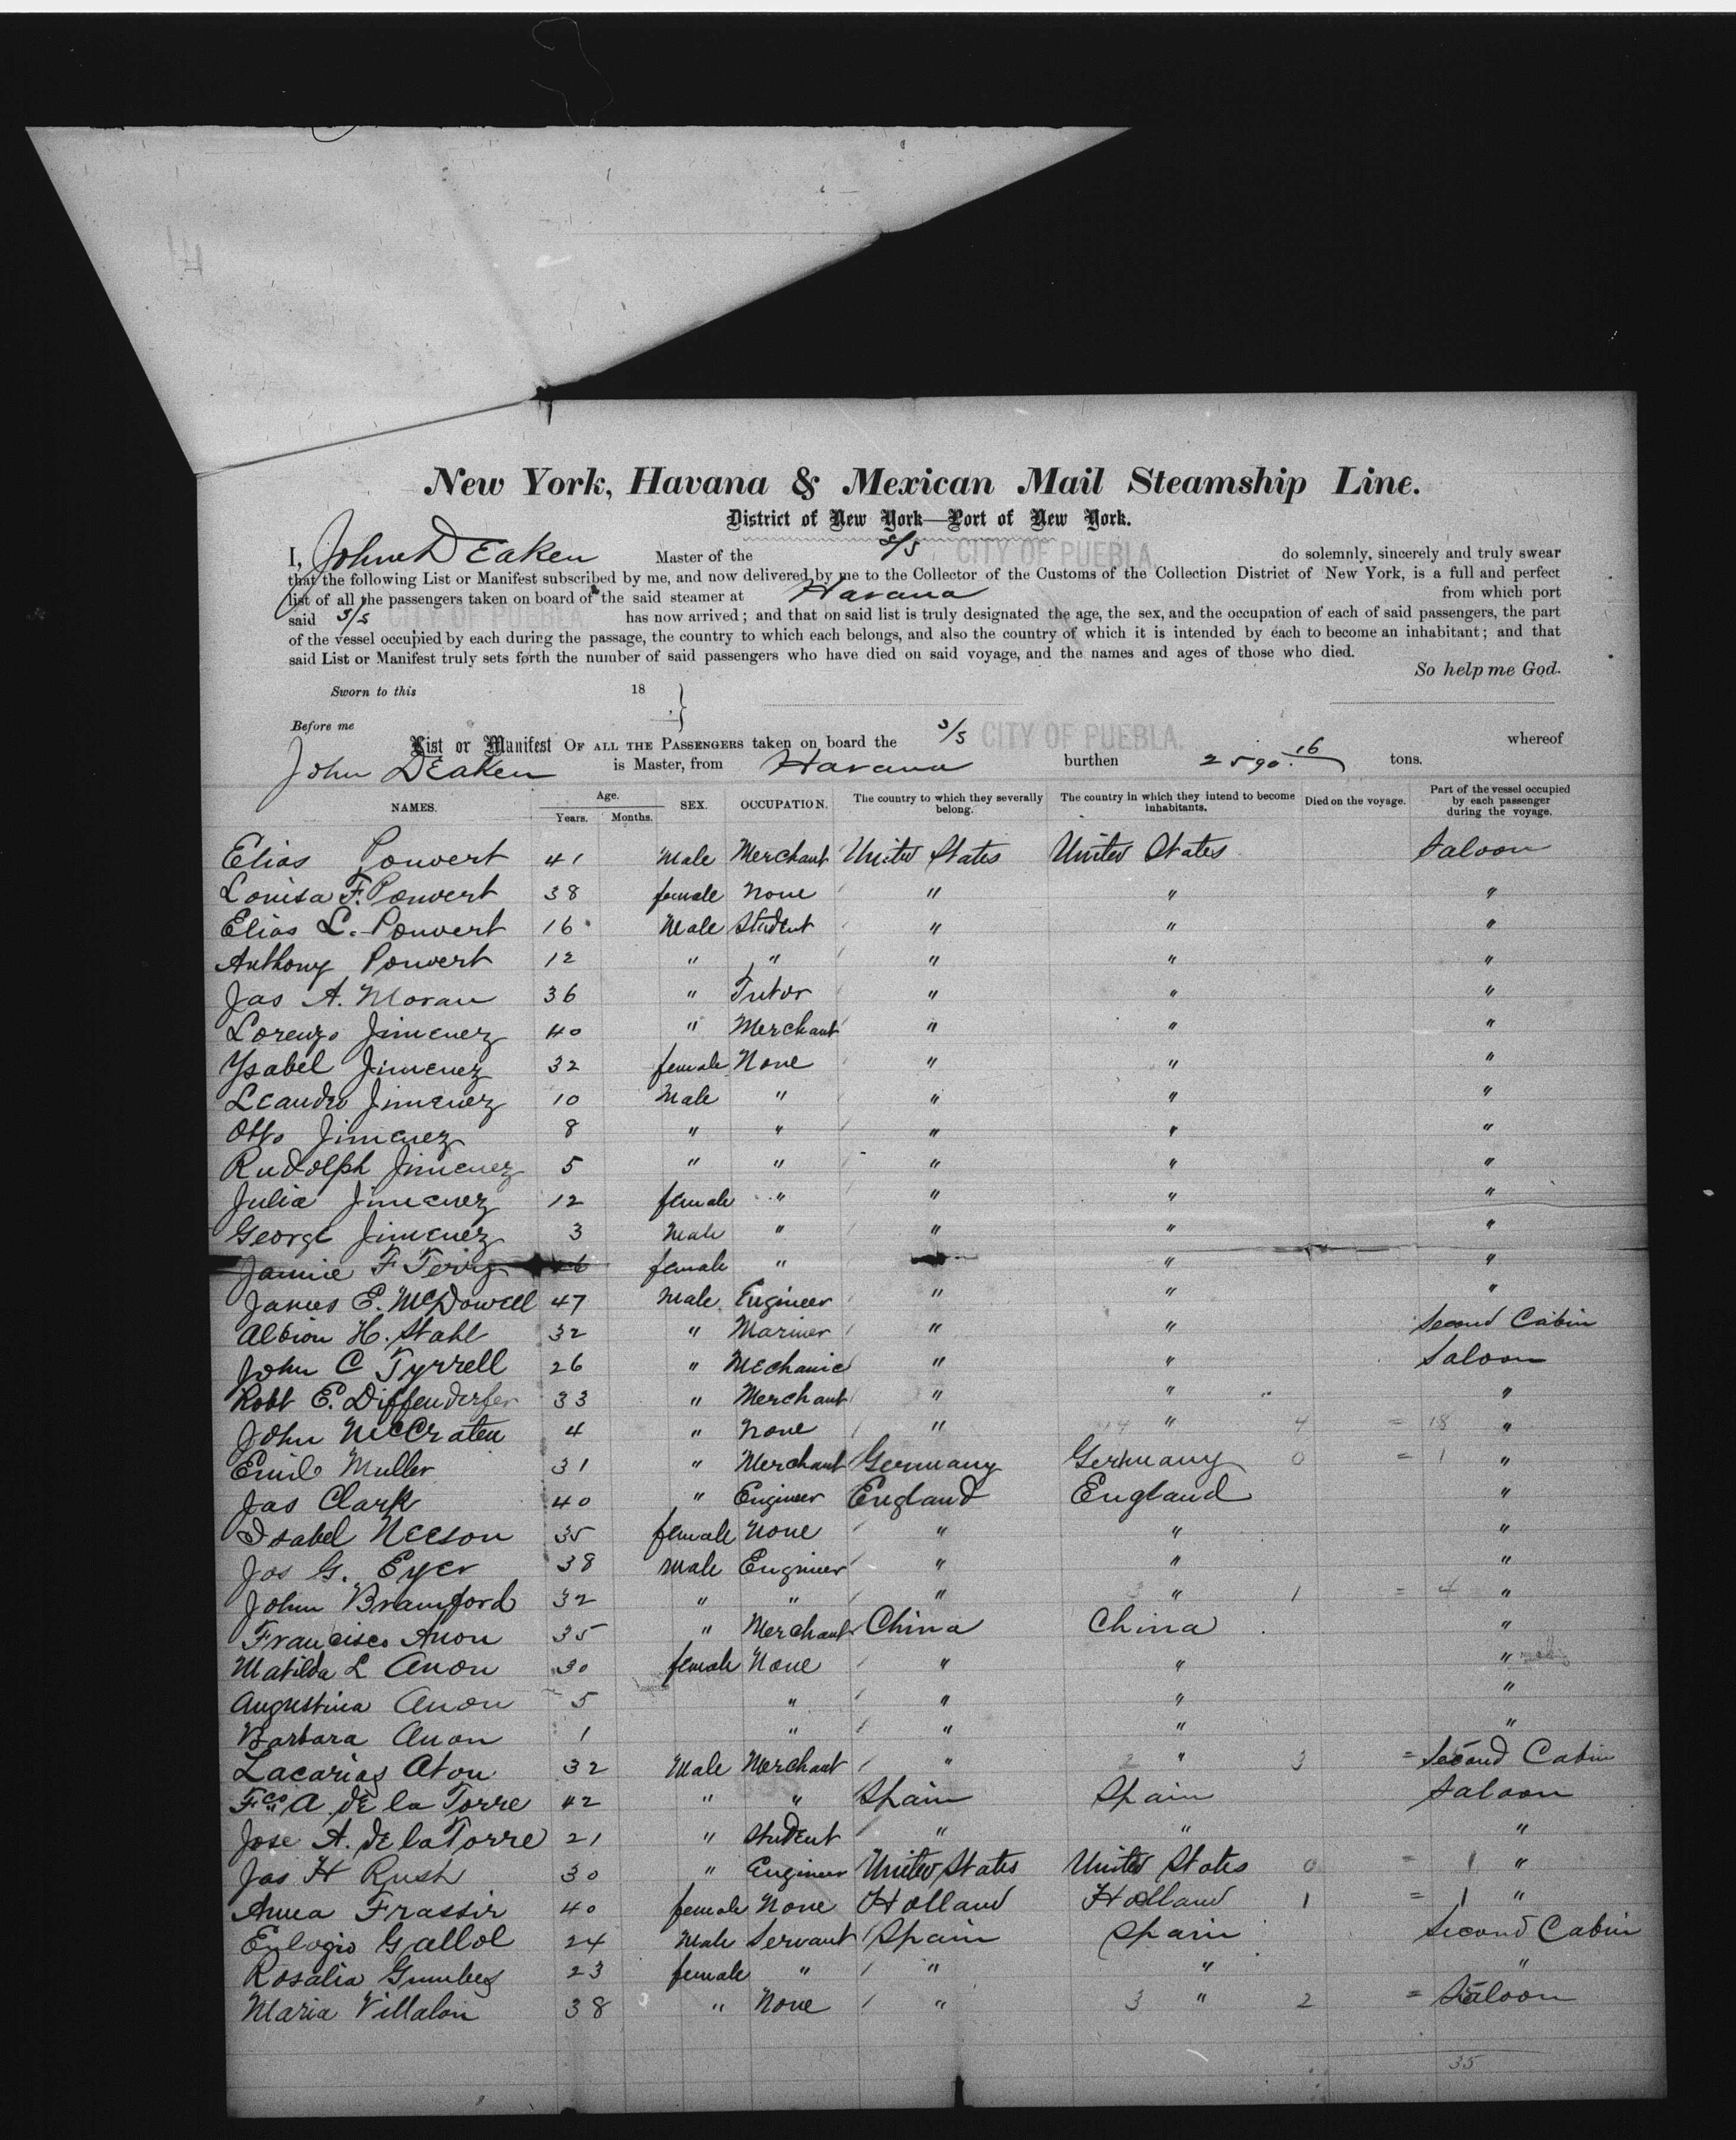 New York, Havana & Mexican Mail Steamship Line.
District of New York—Port of New York.
I, John Deaken Master of the S/S CITY OF PUEBLA, do solemnly, sincerely and truly swear
that the following List or Manifest subscribed by me, and now delivered by me to the Collector of the Customs of the Collection District of New York, is a full and perfect
list of all the passengers taken on board of the said steamer at Havana from which port
said S/S CITY OF PUEBLA has now arrived; and that on said list is truly designated the age, the sex, and the occupation of each of said passengers, the part
of the vessel occupied by each during the passage, the country to which each belongs, and also the country of which it is intended by each to become an inhabitant; and that
said List or Manifest truly sets forth the number of said passengers who have died on said voyage, and the names and ages of those who died.
So help me God.
Sworn to this 18
Before me
List or Manifest OF ALL THE PASSENGERS taken on board the S/S CITY OF PUEBLA, whereof
John Deaken is Master, from Havana burthen 2590 16 tons.
NAMES. Age. Years. Months. SEX. OCCUPATION. The country to which they severally belong. The country in which they intend to become inhabitants. Died on the voyage. Part of the vessel occupied by each passenger during the voyage.
Elias Ponvert 41 Male Merchant United States United States Saloon
Louisa F. Ponvert 38 female None " " "
Elias L. Ponvert 16 Male Student " " "
Anthony Ponvert 12 " " " " "
Jas A. Moran 36 " Tutor " " "
Lorenzo Jimenez 40 " Merchant " " "
Ysabel Jimenez 32 female None " " "
Leandro Jimenez 10 Male " " " "
Otto Jimenez 8 " " " " "
Rudolph Jimenez 5 " " " " "
Julia Jimenez 12 female " " " "
George Jimenez 3 Male " " " "
Jannie F Terry female " " "
James E. McDowell 47 Male Engineer " " "
Albion H. Stahl 32 " Mariner " " Second Cabin
John C Tyrrell 26 " Mechanic " " Saloon
Robt E. Diffenderfer 33 " Merchant " " "
John McCraten 4 " None " 14 " 4 = 18 "
Emil Muller 31 " Merchant Germany Germany 0 = 1 "
Jas Clark 40 " Engineer England England "
Isabel Neeson 35 female None " " "
Jas G. Eyer 38 male Engineer " " "
John Bramford 32 " " " 3 " 1 = 4 "
Francisco Anon 35 " Merchant China China "
Matilda L Anon 30 female None " " "
Augustina Anon 5 " " " "
Barbara Anon 1 " " " "
Lacarias Aton 32 Male Merchant " 2 " 3 = Second Cabin
Fco A. de la Torre 42 " " Spain Spain Saloon
Jose A. de la Torre 21 " Student " " "
Jas H Rush 30 " Engineer United States United States 0 = 1 "
Anna Frassir 40 female None Holland Holland 1 = 1 "
Eulogio Gallol 24 Male Servant Spain Spain Second Cabin
Rosalia Gumbes 23 female " " " "
Maria Villalon 38 " None " 3 " 2 = Saloon
35